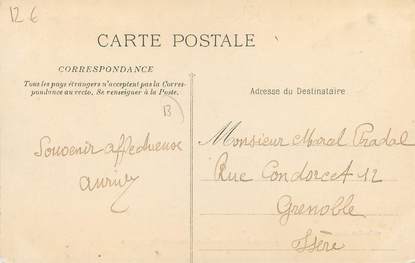 12 €
CARTE POSTALE
CORRESPONDANCE
Tous les pays étrangers n'acceptent pas la Corres-
pondance au recto. Se renseigner à la Poste.
B)
Souvenir affectueux
Adresse du Destinataire
Monsieur Marcel Pradal
Rue Condorcet 12
Grenoble
Isère